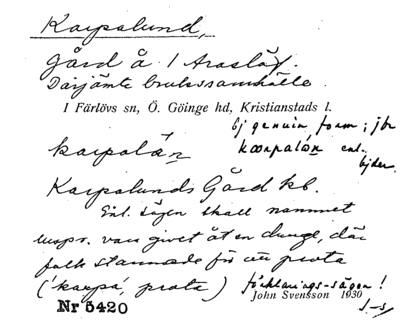 Karpalund,
Gård å 1 Araslöf.
Därjämte brukssamhälle.
I Färlövs sn, Ö. Göinge hd, Kristianstads l.
Ej genuin form; jfr
karpalän kārpalón enl.
bjder.
Karpalunds Gård kb.
Enl. sägen skall namnet
urspr. vara givet åt en dunge, där
folk stannade för att prata
('karpa, prata) förklarings-sägen!
John Svensson 1930
Nr 5420 J-s,